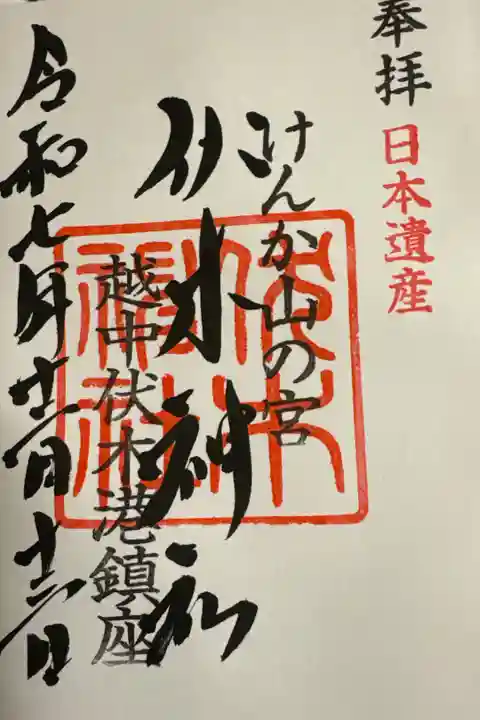 奉拝
日本遺産
けんか山の宮
伏木神社
越中伏木港鎮座
令和七年十二月